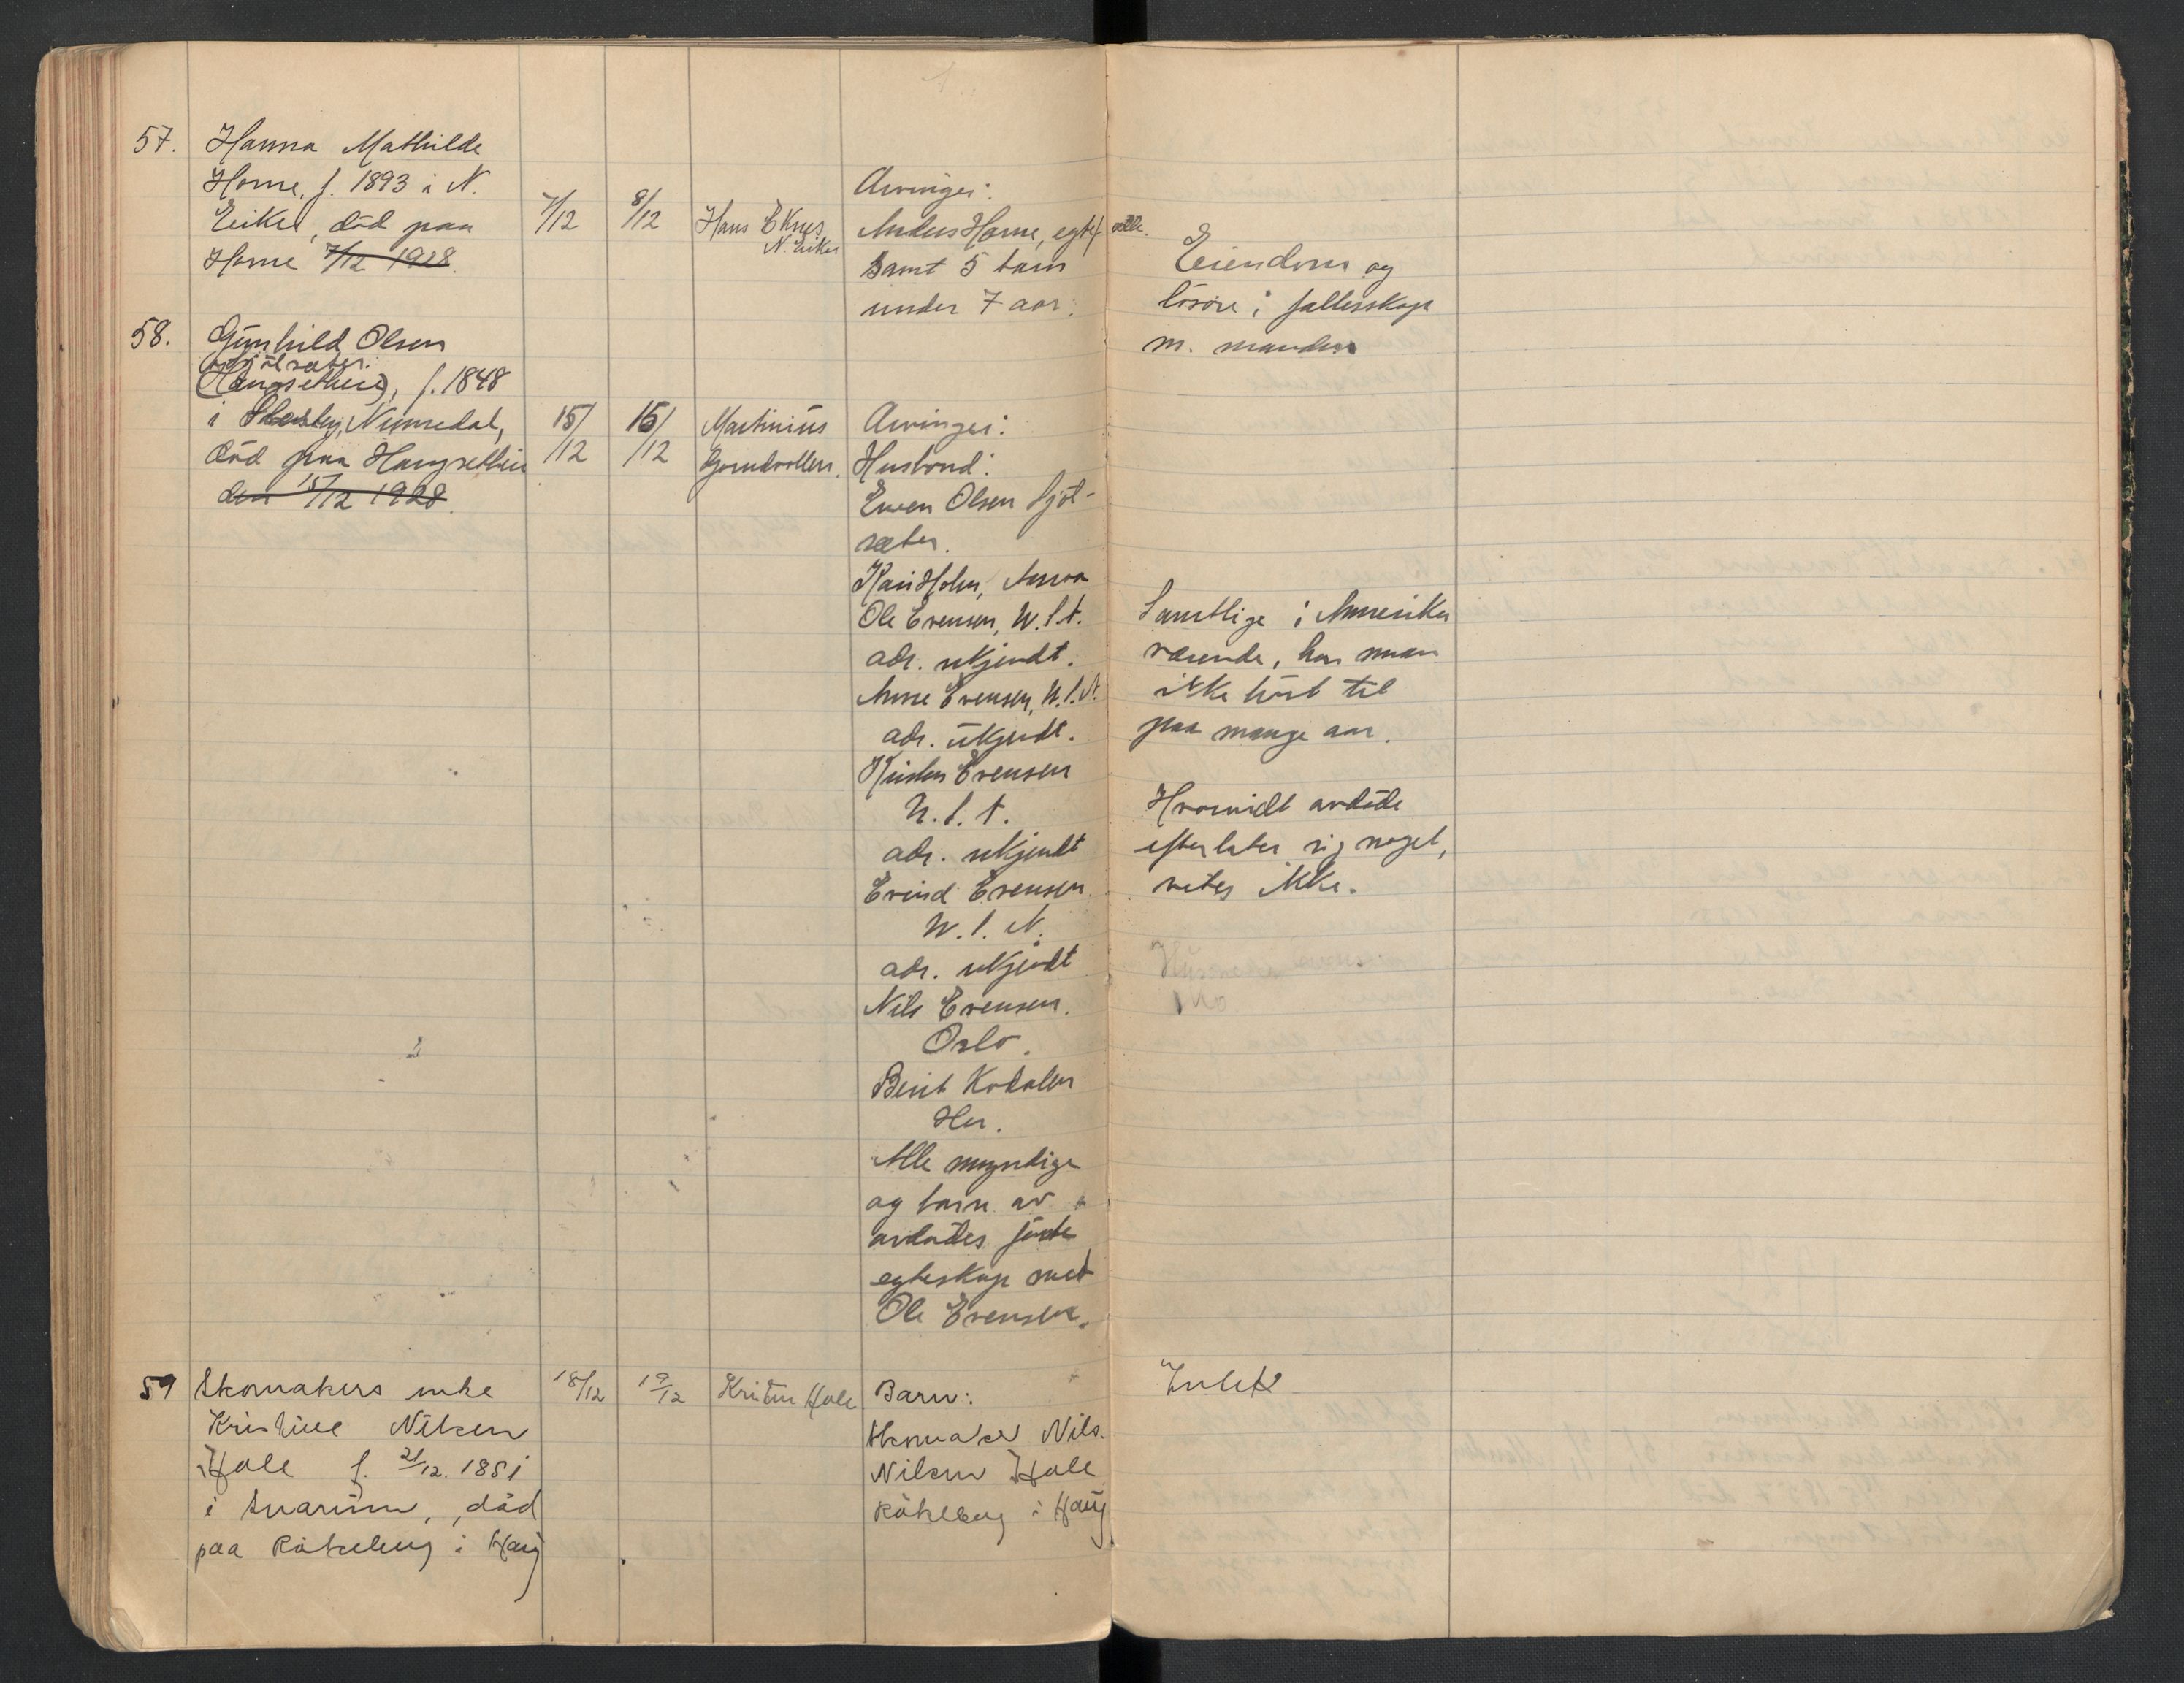 57.
Hanna Mathilde
Horne, f. 1893 i N.
Eiker, död paa
Horne 7/12 1928.
7/12
8/12
Hans E Knus
N. Eiker
Arvinger:
Anders Horne, egtefælle.
Samt 5 barn
under 7 aar.
Eiendom og
lösöre i fællesskap
m. manden
58.
Gunhild Olsen
Sjölsæter.
(Haugsetheie), f. 1848
i Numedal,
död paa Haugsetheie
den 15/12 1928.
15/12
16/12
Martinius
Arvinger:
Husbond:
Even Olsen Sjöl-
sæter.
Kari Holm,
Ole Evensen, U.S.A.
adr. ukjendt.
Anne Evensen, U.S.A.
adr. ukjendt.
Kristen Evensen
U.S.A.
adr. ukjendt
Evind Evensen
U.S.A.
adr. ukjendt
Nils Evensen.
Oslo.
Berit Kodalen
Her.
Alle myndige
og barn av
avdödes förste
egteskap med
Ole Evensen.
Samtlige i Amerika
værende, har man
ikke hört til
paa mange aar.
Hvorvidt avdöde
efterlater sig noget,
vites ikke.
59
Skomakers enke
Kristine Nilsen
Hole f. 21/12. 1851
i Snarum, död
paa Rökeberg i Haug
18/12
19/12
Kristin Hole
Barn:
Skomaker Nils
Nilsen Hole
Rökeberg i Haug
Intet